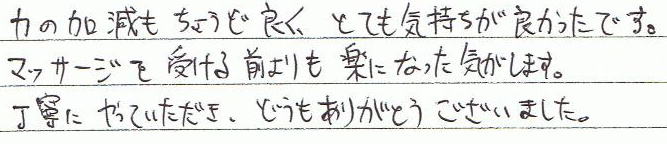 力の加減もちょうど良く、とても気持ちが良かったです。
マッサージを受ける前よりも楽になった気がします。
丁寧にやっていただき、どうもありがとうございました。